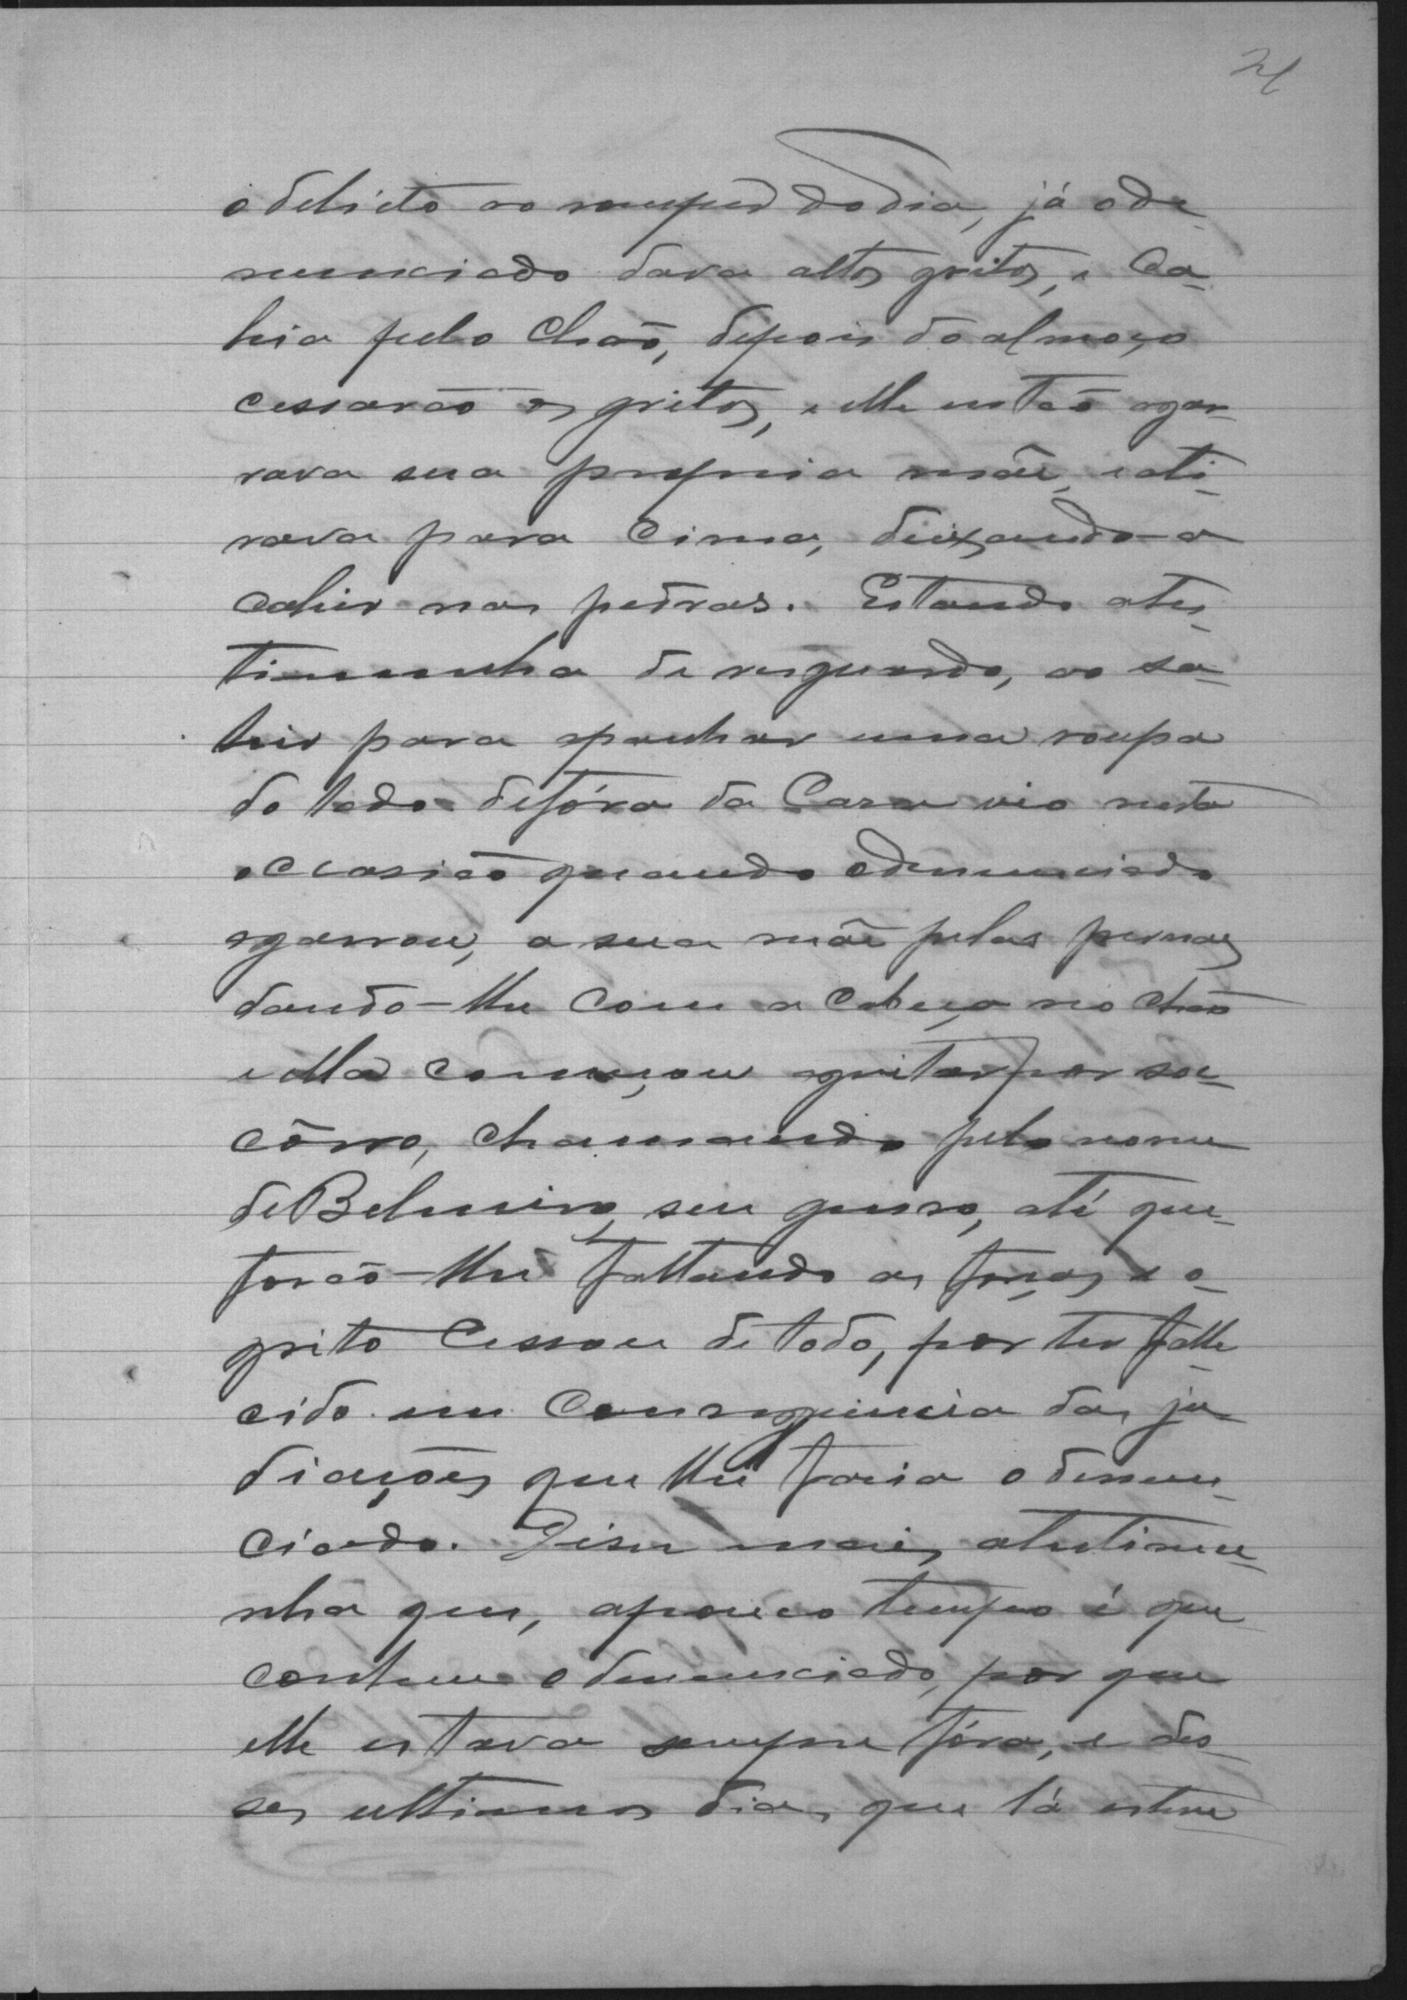 21
o delicto ao romper do dia, já o de-
nunciado dava altos gritos, e Ca-
hia pelo Chão, depois do almoço
cessarão os gritos, e elle então agar-
rava sua propria mãe, e ati-
rava para Cima, deixando-a
cahir nas pedras. Estando a tes-
timunha de resguardo, ao sa-
hir para apanhar uma roupa
do lado defóra da Casa vio nesta
occasião quando o denunciado
agarrou, a sua mãe pelas pernas
dando-lhe Com a Cabeça no Chão
e ella começou a gritar por so-
côrro, chamando pelo nome
de Belmiro, seu genro, até que-
forão-lhe faltando as forças e o-
grito Cessou de todo, por ter falle-
cido em Consequencia das ju-
diações que lhe fazia o denun-
ciado. Disse mais, a testimu-
nha que, a pouco tempo é que
conhece o denunciado, por que
elle estava sempre fóra, e des-
ses ultimos dias, que lá esteve